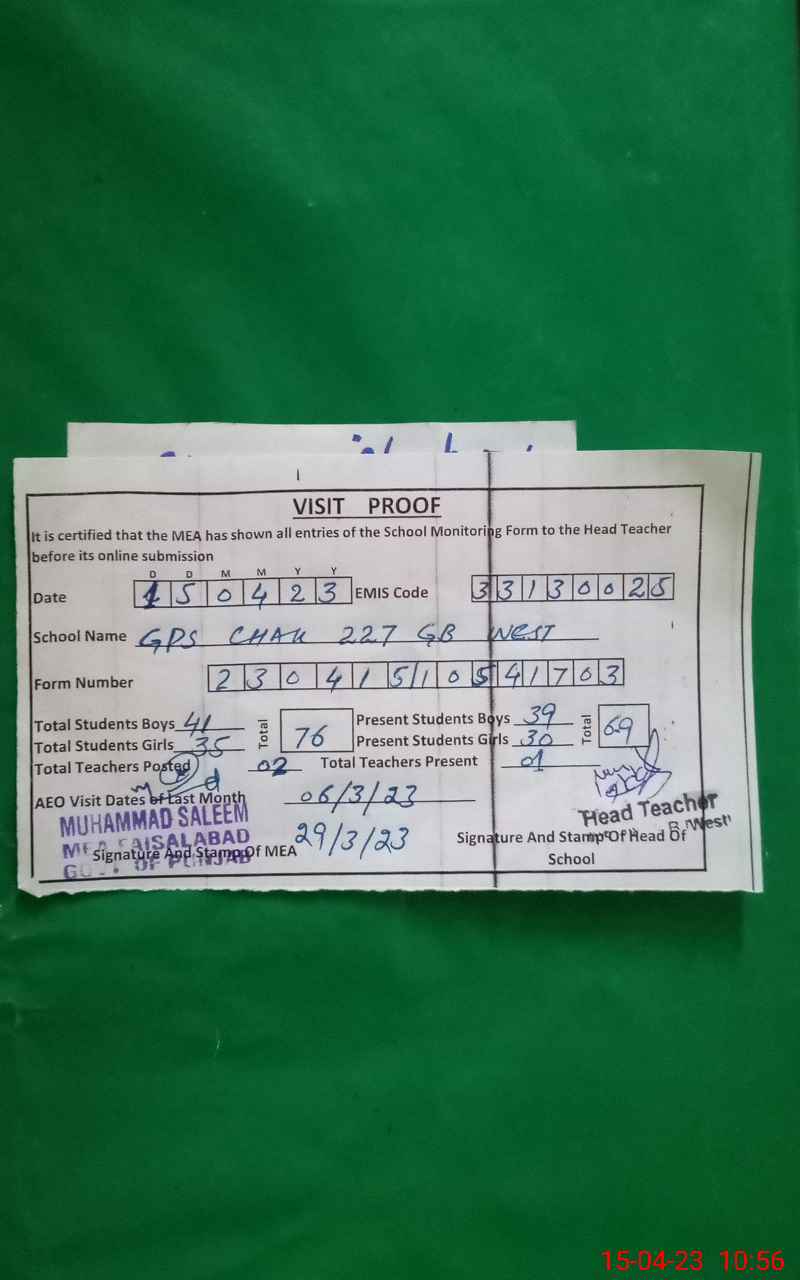 VISIT PROOF
It is certified that the MEA has shown all entries of the School Monitoring Form to the Head Teacher
before its online submission
D D M M Y Y
Date 1 5 0 4 2 3 EMIS Code 3 3 1 3 0 0 2 5
School Name GPS CHAK 227 GB WEST
Form Number 2 3 0 4 1 5 1 0 5 4 1 7 0 3
Total Students Boys 41 Total 76 Present Students Boys 39 Total 69
Total Students Girls 35 Present Students Girls 30
Total Teachers Posted 02 Total Teachers Present 01
AEO Visit Dates of Last Month 06/3/23
29/3/23
MUHAMMAD SALEEM
MEA FAISALABAD
GOVT. OF PUNJAB
Signature And Stamp Of MEA
Head Teacher
West
Signature And Stamp Of Head Of
School
15-04-23 10:56